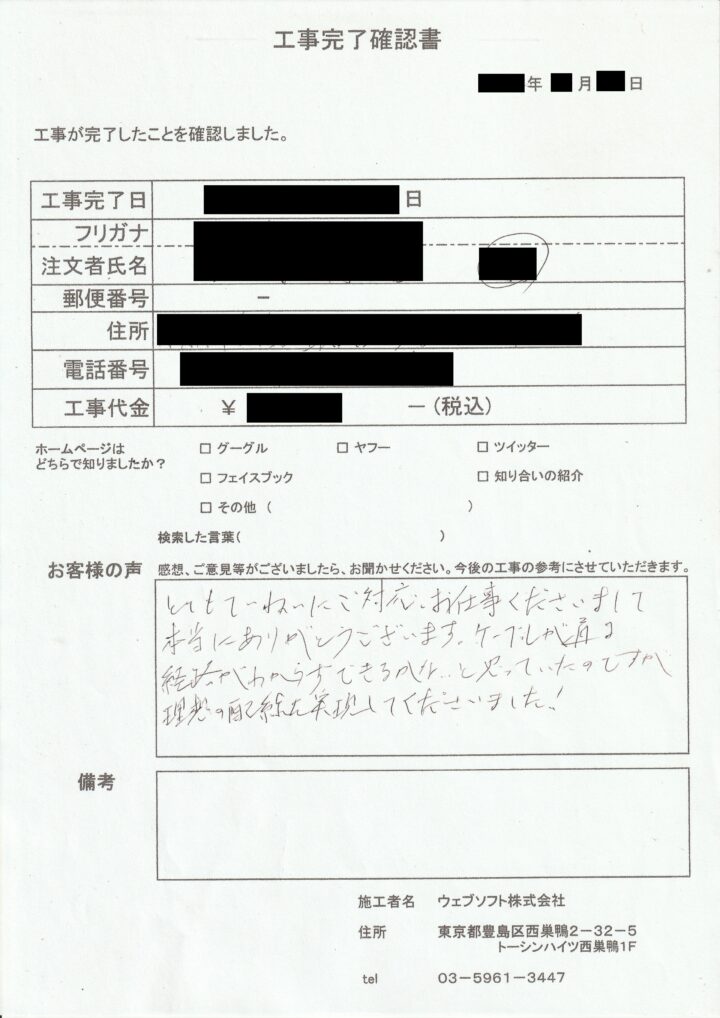 工事完了確認書
年 月 日
工事が完了したことを確認しました。
工事完了日 日
フリガナ
注文者氏名
郵便番号 －
住所
電話番号
工事代金 ¥ －(税込)
ホームページは
どちらで知りましたか？
□ グーグル □ ヤフー □ ツイッター
□ フェイスブック □ 知り合いの紹介
□ その他 ( )
検索した言葉( )
お客様の声 感想、ご意見等がございましたら、お聞かせください。今後の工事の参考にさせていただきます。
とてもていねいにご対応、お仕事くださいまして
本当にありがとうございます。ケーブルが通る
経路がわからずできるかな…と思っていたのですが
理想の配線を実現してくださいました！
備考
施工者名 ウェブソフト株式会社
住所 東京都豊島区西巣鴨2－32－5
トーシンハイツ西巣鴨1F
tel 03－5961－3447